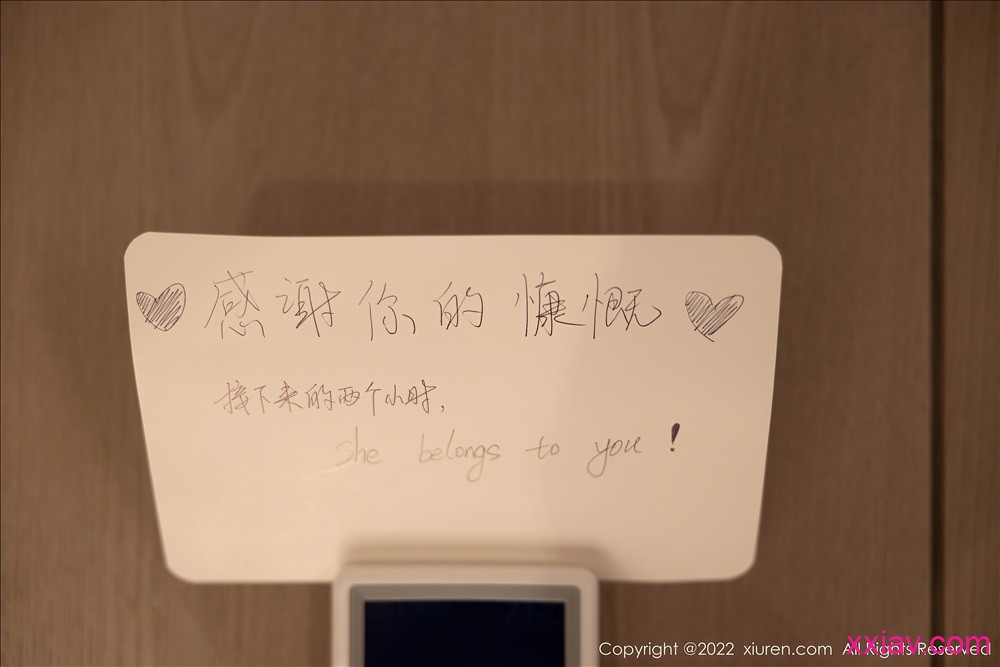 感谢你的慷慨
接下来的两个小时,
she belongs to you!
Copyright @2022 xiuren.com All Rights Reserved
xxiav.com